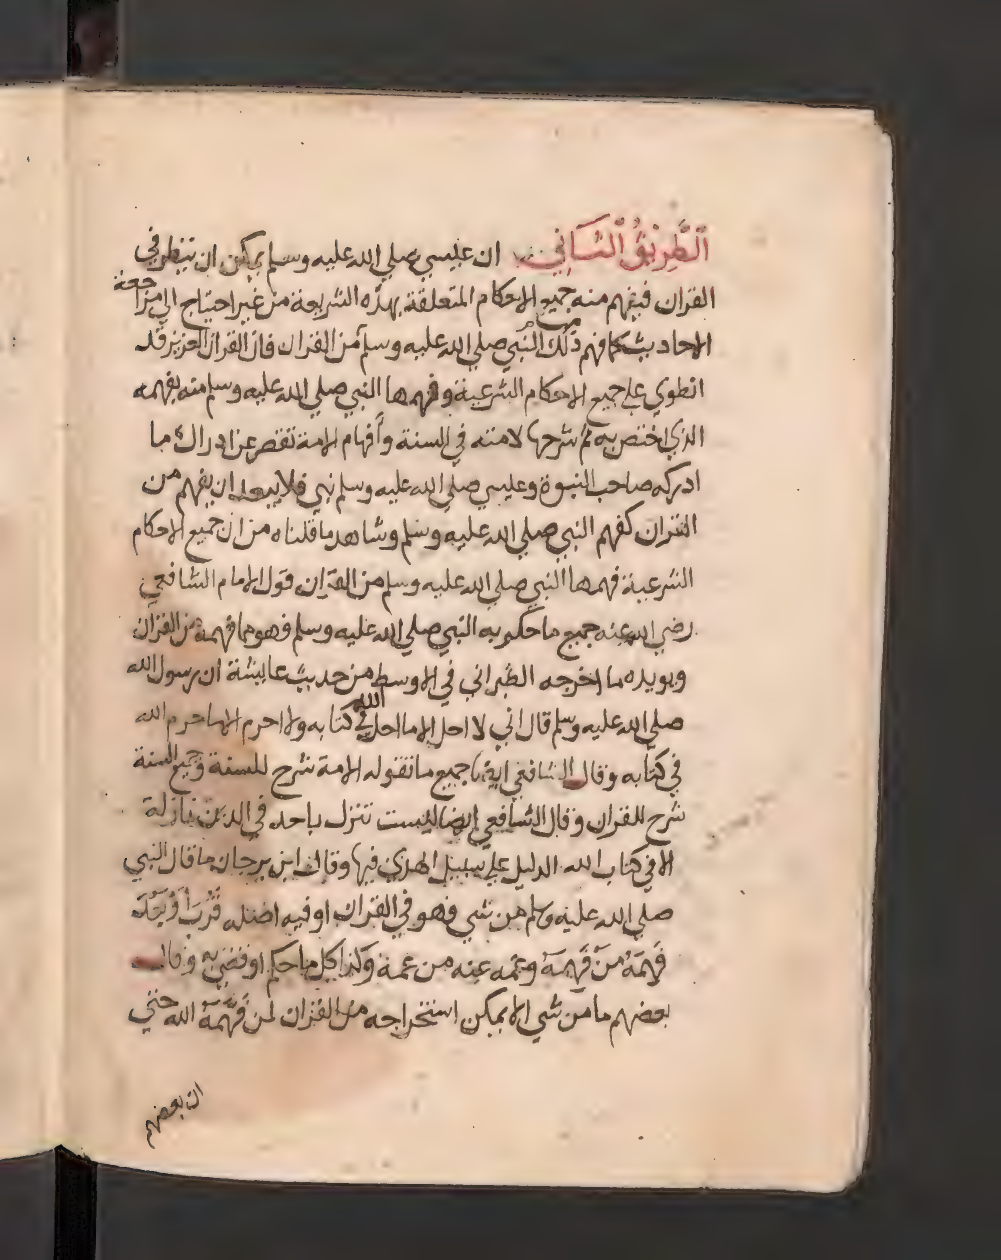 اَلطَّرِيْقُ الثَّانِي ان عليسي صلي الله عليه وسلم يمكن ان ينظر في
القران فيفهم منه جميع الاحكام المتعلقة بهذه الشريعة من غير احتياج الي مراجعة
الاحاديث كما فهم ذلك النبي صلي الله عليه وسلم من القران فان القران العزيز قد
انطوي علي جميع الاحكام الشرعية وفهمها النبي صلي الله عليه وسلم منه بفهمه
الذي اختص به ثم شرحها لامته في السنة وأفهام الامة تقصر عن ادراك ما
ادركه صاحب النبوة وعليسي صلي الله عليه وسلم نبي فلا يبعد ان يفهم من
القران كفهم النبي صلي الله عليه وسلم وشاهد ما قلناه من ان جميع الاحكام
الشرعية فهمها النبي صلي الله عليه وسلم من القران قول الامام الشافعي
رضي الله عنه جميع ما حكم به النبي صلي الله عليه وسلم فهو مما فهمه من القران
ويويده ما اخرجه الطبراني في الاوسط من حديث عايشة ان رسول الله
صلي الله عليه وسلم قال اني لا احل الا ما احل الله في كتابه ولا احرم الا ما حرم الله
في كتابه وقال الشافعي ايضا جميع ما تقوله الامة شرح للسنة وجميع السنة
شرح للقران وقال الشافعي ايضا ليست تنزل باحد في الدين نازلة
الا في كتاب الله الدليل علي سبيل الهدي فيها وقال ابن برجان ما قال النبي
صلي الله عليه وسلم من شي فهو في القران او فيه اصله قَرُبَ أَوْ بَعُدَ
فَهِمَهُ مَنْ فَهِمَهُ وعمه عنه من عمه وكذا كل ما حكم او قضي به وقال
بعضهم ما من شي الا يمكن استخراجه من القران لمن فَهَّمَهُ الله حتي
ان بعضهم